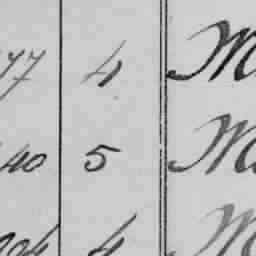 77 4 M
40 5 M
204 4 M